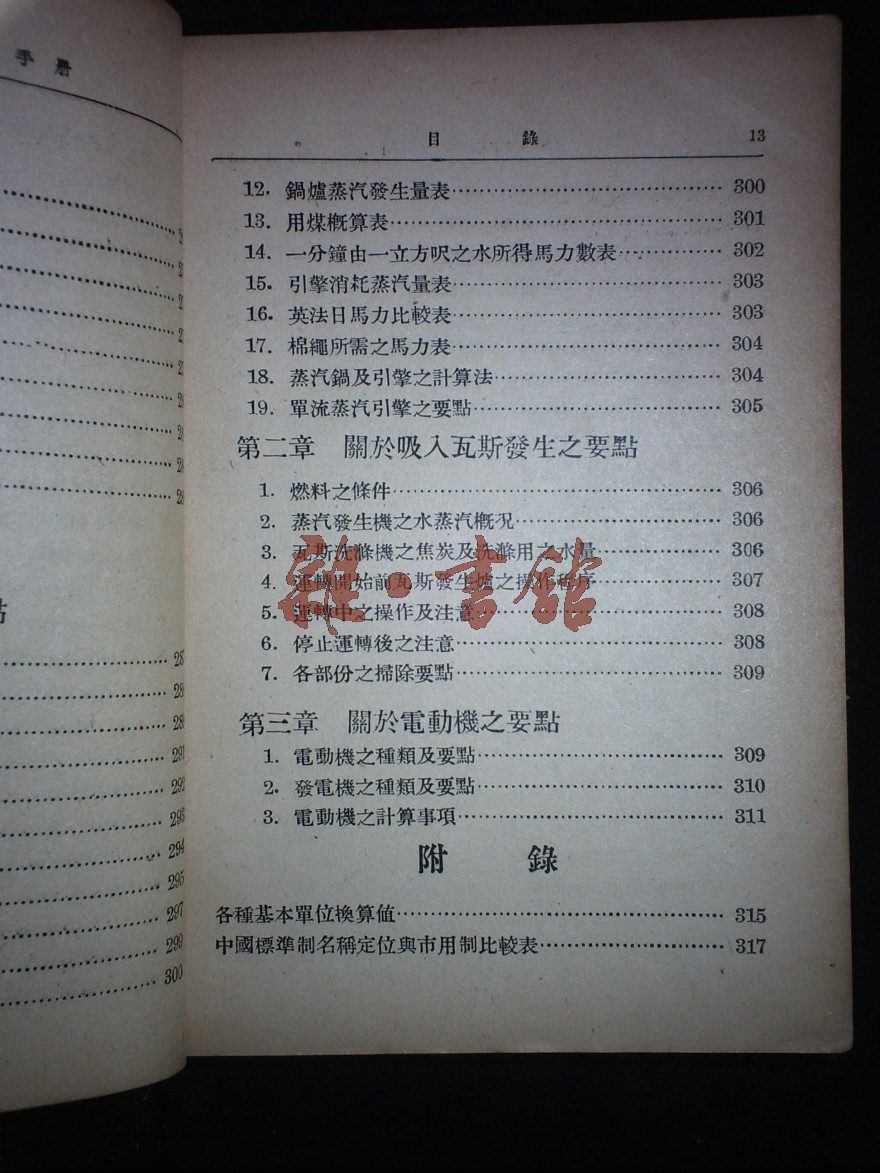 手册
300
299
297
295
294
293
292
291
目錄 13
12. 鍋爐蒸汽發生量表 300
13. 用煤概算表 301
14. 一分鐘由一立方呎之水所得馬力數表 302
15. 引擎消耗蒸汽量表 303
16. 英法日馬力比較表 303
17. 棉繩所需之馬力表 304
18. 蒸汽鍋及引擎之計算法 304
19. 單流蒸汽引擎之要點 305
第二章 關於吸入瓦斯發生之要點
1. 燃料之條件 306
2. 蒸汽發生機之水蒸汽概況 306
3. 瓦斯洗滌機之焦炭及洗滌用之水量 306
4. 運轉開始前瓦斯發生爐之操作程序 307
5. 運轉中之操作及注意 308
6. 停止運轉後之注意 308
7. 各部份之掃除要點 309
第三章 關於電動機之要點
1. 電動機之種類及要點 309
2. 發電機之種類及要點 310
3. 電動機之計算事項 311
附錄
各種基本單位換算值 315
中國標準制名稱定位與市用制比較表 317
雜·書館